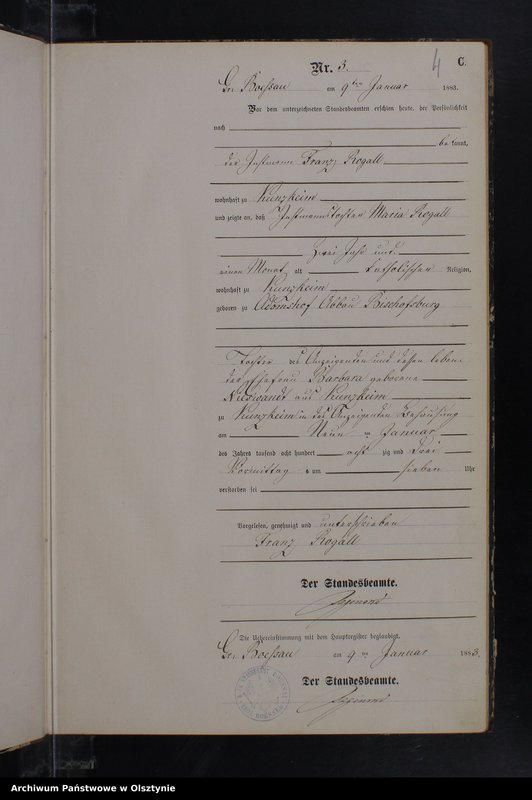 4 C.
Nr. 3.
Gr. Boessau am 9ten Januar 1883.
Vor dem unterzeichneten Standesbeamten erschien heute, der Persönlichkeit
nach
bekannt,
der Instmann Franz Rogall
wohnhaft zu Kunzheim
und zeigte an, daß Instmannstochter Maria Rogall
Zwei Jahr und
einen Monat alt katholischer Religion,
wohnhaft zu Kunzheim
geboren zu Adamshof Abbau Bischofsburg
Tochter des Anzeigenden und dessen leben
der Ehefrau Barbara geborene
aus Kunzheim
zu Kunzheim in des Anzeigenden Behausung
am Neun ten Januar
des Jahres tausend acht hundert acht zig und drei
Vormittag s um sieben Uhr
verstorben sei
Vorgelesen, genehmigt und unterschrieben
Franz Rogall
Der Standesbeamte.
Die Uebereinstimmung mit dem Hauptregister beglaubigt.
Gr. Boessau am 9ten Januar 1883.
Der Standesbeamte.
Archiwum Państwowe w Olsztynie